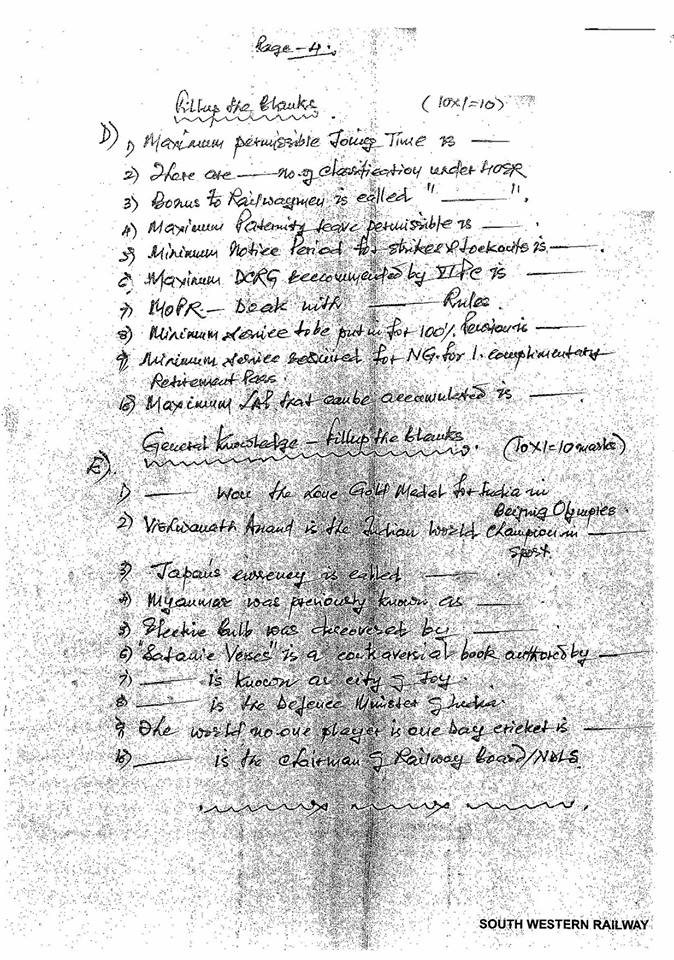 Page - 4.
Fillup the blanks (10x1=10)
D) 1) Maximum permissible Joing Time is ——
2) There are —— no. of classification under HOER
3) Bonus to Railwaymen is called "———".
4) Maximum Paternity leave permissible is ——.
5) Minimum Notice Period for strikes & Lockouts is ——.
6) Maximum DCRG reccommented by VI PC is ——
7) MOPR — Deak with ——— Rules.
8) Minimum service to be put in for 100% Pension is ——
9) Minimum service required for NG. for 1. complimentary
Retirement Pass.
10) Maximum LAP that canbe accumulated is ——
General Knowledge — Fillup the blanks. (10x1=10 marks)
E).
1) —— Won the Lone Gold Medal for India in
Beijing Olympics.
2) Vishwanath Anand is the Indian World Champion in ——
sport.
3) Japan's currency is called ——
4) Myanmar was previously known as ——
5) Electric Bulb was discovered by ——
6) "Satanic Verses" is a controversial book authored by ——
7) ——— is known as city of Joy.
8) ——— is the Defence Minister of India.
9) The world no. one player is one Day cricket is ——
10) ——— is the chairman of Railway Board/NDLS
SOUTH WESTERN RAILWAY